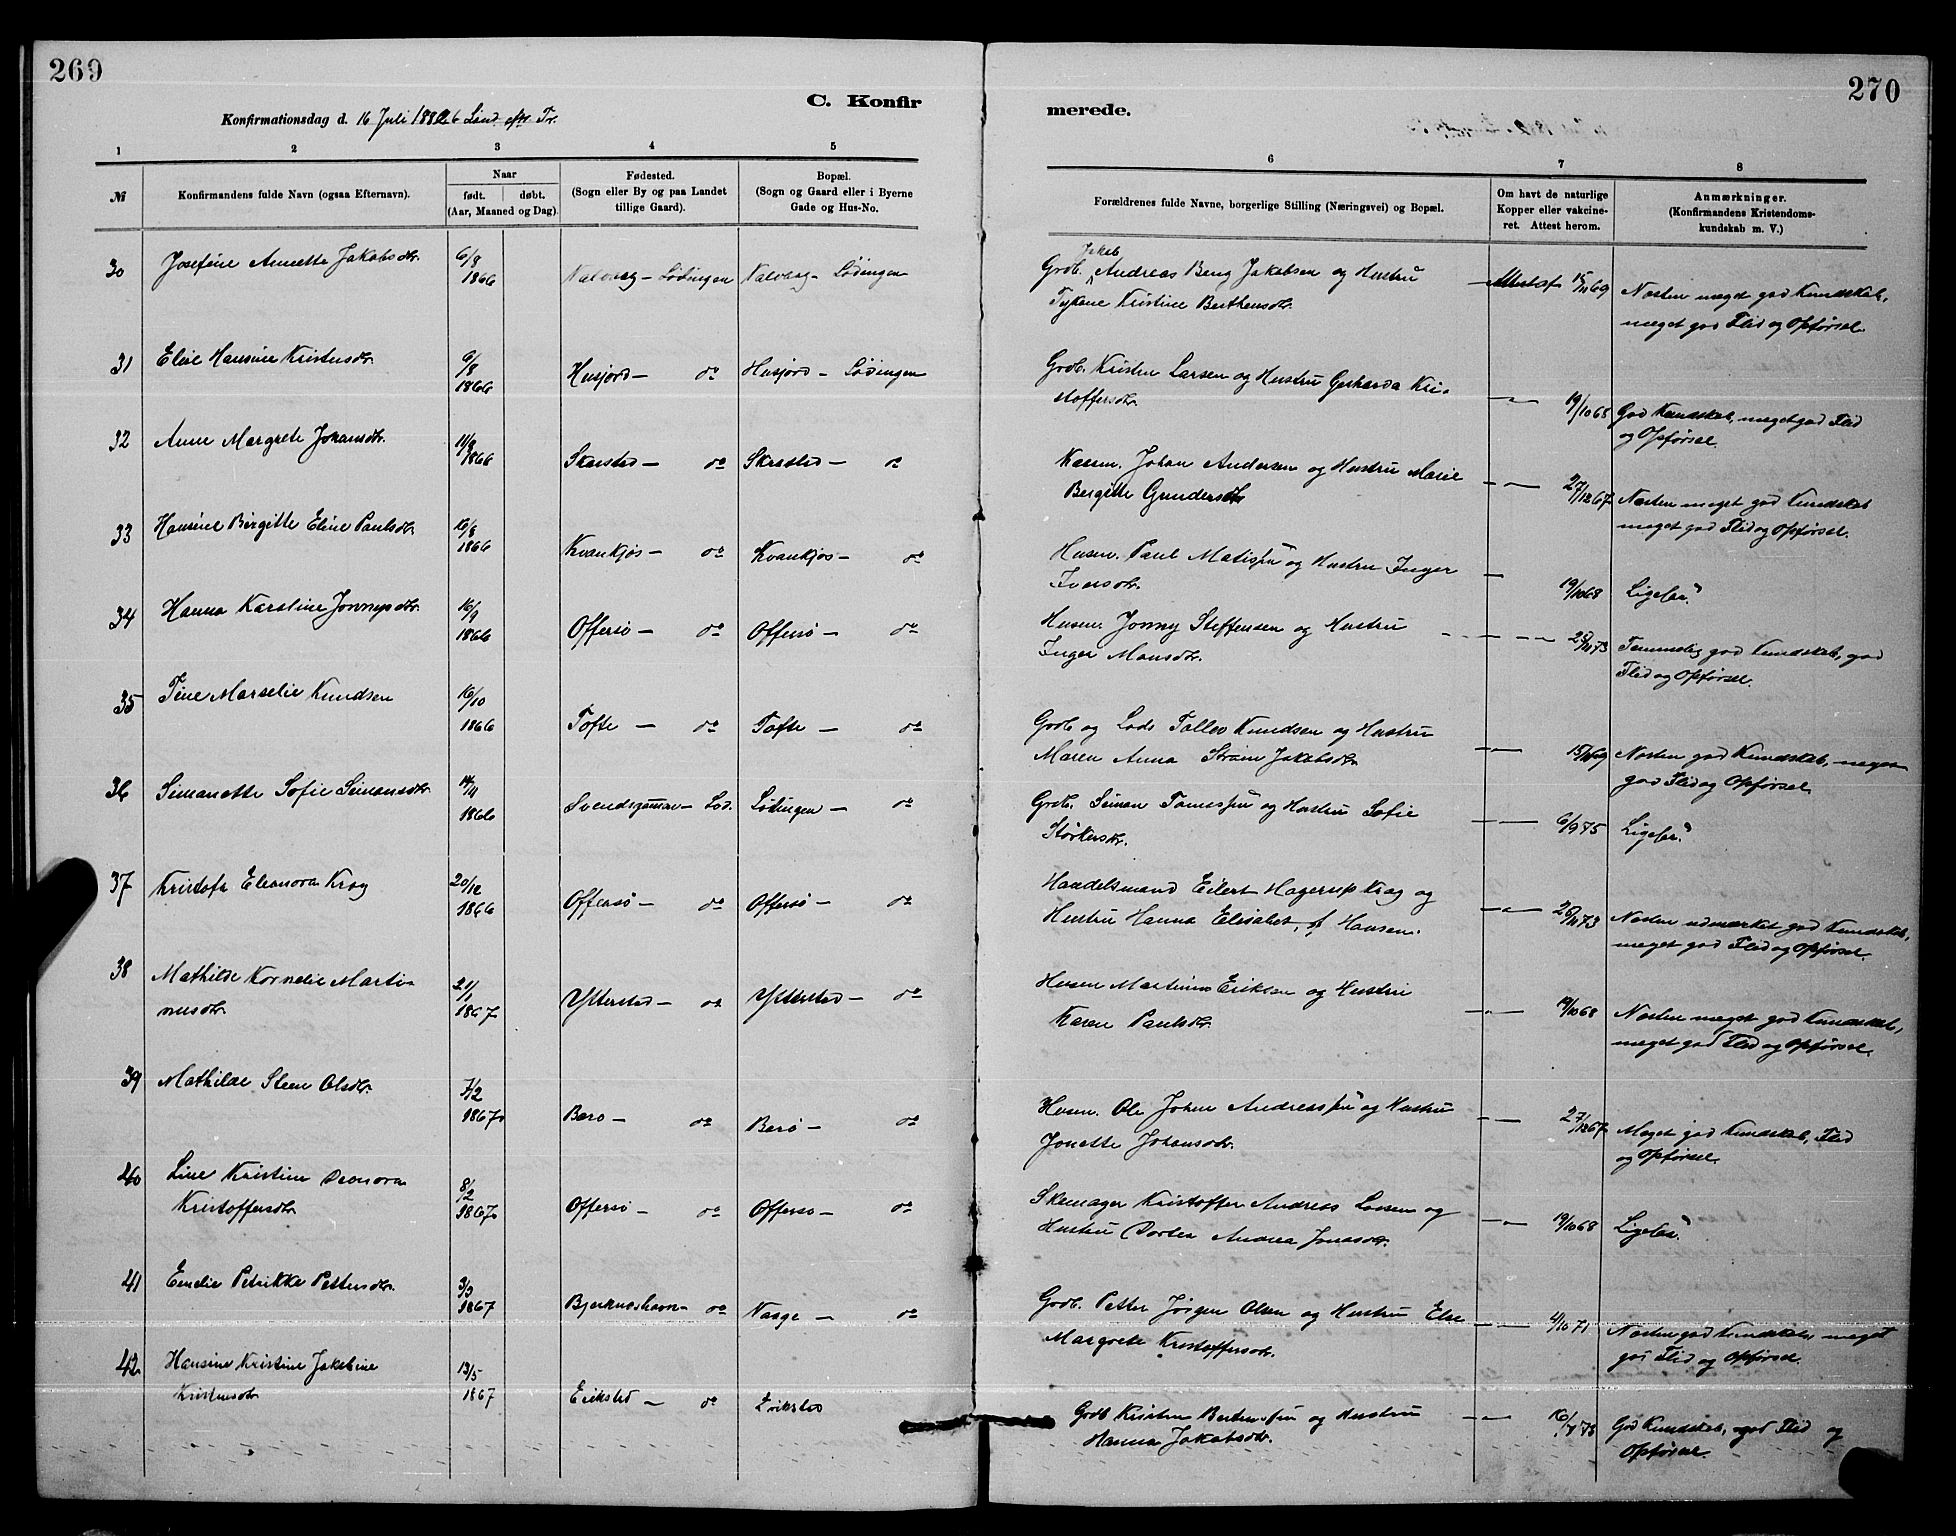 269
270
C. Konfirmerede.
Konfirmationsdag d. 16 Juli 1882 6 Sønd. eftr Tr.
1 2 3 4 5 6 7 8
№
Konfirmandens fulde Navn (ogsaa Efternavn).
Naar
født. døbt.
(Aar, Maaned og Dag).
Fødested.
(Sogn eller By og paa Landet
tillige Gaard).
Bopæl.
(Sogn og Gaard eller i Byerne
Gade og Hus-No.
Forældrenes fulde Navne, borgerlige Stilling (Næringsvei) og Bopæl.
Om havt de naturlige
Kopper eller vakcine-
ret. Attest herom.
Anmærkninger.
(Konfirmandens Kristendoms-
kundskab m. V.)
30 Josefine Annette Jakobsdtr. 6/8 1866 Kalveag – Lødingen Kalveag – Lødingen
Grdb. Jakob Andreas Beng Jakobsen og Hustru
Kristine Berthensdtr.
Attest af 15/11 69 Næsten meget god Kundskab,
meget god Flid og Opførsel.
31 Eline Hansine Kristensdtr. 6/8 1866 Husjord – do Husjord – Lødingen
Grdb. Kristen Larsen og Hustru Gerharda Kri-
stoffersdtr.
–"– 19/10 68 God Kundskab, meget god Flid
og Opførsel.
32 Anne Margrete Johansdtr. 11/8 1866 Skarstad – do Skarstad – do
Johan Andersen og Hustru Marie
Bergitte Gundersdtr
–"– 27/12 67 Næsten meget god Kundskab
meget god Flid og Opførsel.
33 Hansine Birgitte Eline Paulsdtr. 16/8 1866 Kvankjøs – do Kvankjøs – do
Husm. Paul Matissen og Hustru Inger
Iversdtr.
– 19/10 68 Ligesaa.
34 Hanna Karoline Jonnysdtr. 16/9 1866 Offersø – do Offersø – do
Husm. Jonny Steffensen og Hustru
Inger Monsdtr.
–"– 28/11 73 Temmelig god Kundskab, god
Flid og Opførsel.
35 Tine Marselie Knudsen 16/10 1866 Tofte – do Tofte – do
Grdb og Lods Tollev Knudsen og Hustru
Maren Anna Strøm Jakobsdtr
–"– 15/11 69 Næsten god Kundskab, meget
god Flid og Opførsel.
36 Simonette Sofie Simonsdtr. 14/11 1866 Svendsgammen – Lød. Lødingen – do
Grdb. Simon Tomessen og Hustru Sofie
Størkersdtr.
–"– 6/9 75 Ligesaa.
37 Kristofa Eleonora Krog 20/12 1866 Offersø – do Offersø – do
Handelsmand Eilert Hagerup Krag og
Hustru Hanna Elisabet, f. Hansen.
–"– 28/11 73 Næsten udmærket god Kundskab,
meget god Flid og Opførsel.
38 Mathilde Kornelie Marti-
nusdtr. 21/1 1867 Ytterstad – do Ytterstad – do
Husm Martinus Eriksen og Hustru
Karen Paulsdtr.
–"– 19/10 68 Næsten meget god Kundskab,
meget god Flid og Opførsel.
39 Mathilde Steen Olsdtr. 7/2 1867 Barø – do Barø – do
Husm. Ole Johan Andreassen og Hustru
Jonette Johansdtr.
–"– 27/12 67 Meget god Kundskab, Flid
og Opførsel.
40 Line Kristine Deonora
Kristoffersdtr. 8/2 1867 Offersø – do Offersø – do
Skomager Kristoffer Andreas Larsen og
Hustru Dortea Andrea Jonasdtr.
–"– 19/10 68 Ligesaa.
41 Emelie Petrikke Pettersdtr. 3/3 1867 Bjerknashavn – do Naage – do
Grdb. Petter Jørgen Olsen og Hustru Else
Margrete Kristoffersdtr.
–"– 4/10 71 Næsten god Kundskab, meget
god Flid og Opførsel.
42 Hansine Kristine Jakobine
Kristensdtr. 13/5 1867 Erikstad – do Erikstad
Grdb Kristen Bertensen og Hustru
Hanna Jakobsdtr.
–"– God Kundskab, god Flid og
Opførsel.